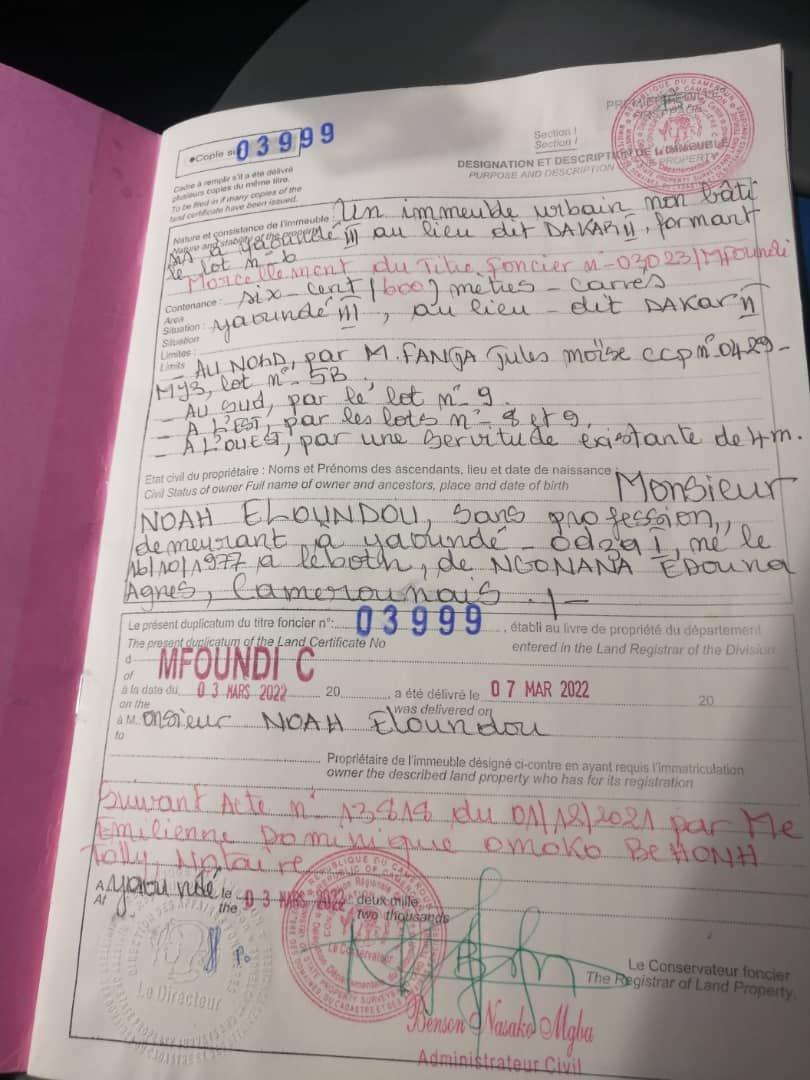 Copie sur 03999
Cadre à remplir s'il a été délivré
plusieurs copies du même titre.
To be filed in if many copies of the
land certificate have been issued.
Section I
Section I
DESIGNATION ET DESCRIPTION DE L'IMMEUBLE
PURPOSE AND DESCRIPTION OF THE PROPERTY
Nature et consistance de l'immeuble : Un immeuble urbain non bâti
Nature and stability of the property
sis à yaoundé III au lieu dit DAKAR II, formant
le lot n°- 6
Morcellement du Titre foncier n°-03023/Mfoundi
Contenance : six-cent (600) mètres-carrés
Area
Situation : yaoundé III, au lieu-dit DAKAR II
Situation
Limites :
Limits
- AU NORD, par M. FANGA Jules moïse ccp n° 0429-
My3, lot n°- 5B.
- AU sud, par le lot n°- 9.
- A L'EST, par les lots n°- 8 et 9.
- A L'OUEST, par une servitude existante de 4m.
Etat civil du propriétaire : Noms et Prénoms des ascendants, lieu et date de naissance
Civil Status of owner Full name of owner and ancestors, place and date of birth
Monsieur
NOAH ELOUNDOU, sans profession,
demeurant à yaoundé - odza I, né le
16/10/1977 à leboth, de NGONANA EDOUNA
Agnes, Camerounais ./-
Le présent duplicatum du titre foncier n°: 03999, établi au livre de propriété du département
The present duplicatum of the Land Certificate No entered in the Land Registrar of the Division
d
of MFOUNDI C
à la date du 03 MARS 2022 20 , a été délivré le 07 MAR 2022 20
on the was delivered on
à Monsieur NOAH Eloundou
to
Propriétaire de l'immeuble désigné ci-contre en ayant requis l'immatriculation
owner the described land property who has for its registration
Suivant Acte n° 13818 du 01/12/2021 par Me
Emilienne Dominique omoko BEHONH
Tolly, Notaire
A yaoundé le 03 MARS 2022 deux mille
At the two thousands
Le Directeur
Le Conservateur foncier
The Registrar of Land Property.
Benson Nasako Mgba
Administrateur Civil